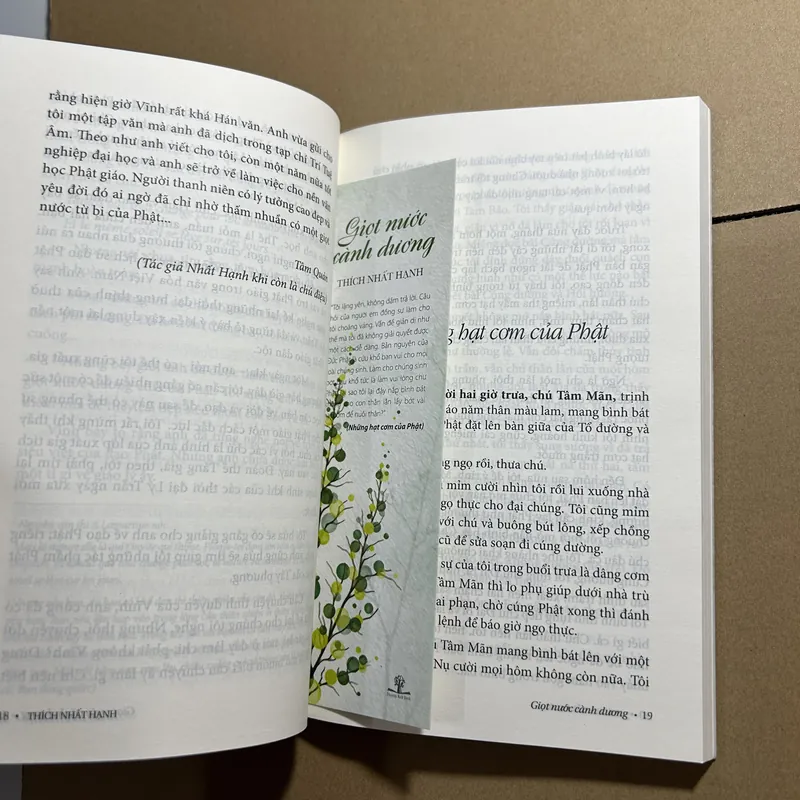 rằng hiện giờ Vĩnh rất khá Hán văn. Anh vừa gửi cho
tôi một tập văn mà anh đã dịch trong tạp chí Trí Tuệ
Âm. Theo như anh viết cho tôi, còn một năm nữa tốt
nghiệp đại học và anh sẽ trở về làm việc cho nền văn
học Phật giáo. Người thanh niên có lý tưởng cao đẹp và
yêu đời đó ai ngờ đã chỉ nhờ thấm nhuần có một giọt
nước từ bi của Phật...
Tâm Quán
(Tác giả Nhất Hạnh khi còn là chú điệu)
18 • THÍCH NHẤT HẠNH
Giọt nước
cành dương
THÍCH NHẤT HẠNH
"Tôi lặng yên, không dám trả lời. Câu
hỏi của người em đồng sự làm cho
tôi choáng váng. Vấn đề giản dị như
thế mà tôi đã không giải quyết được
một cách dễ dàng. Bản nguyện của
Đức Phật là cứu khổ ban vui cho mọi
loài chúng sinh. Làm cho chúng sinh
khổ tức là làm vui lòng chư
sao tôi lại đậy nắp bình bát
con thằn lằn lấy bớt vài
cơm để nuôi thân?"
(Những hạt cơm của Phật)
hạt cơm của Phật
hai giờ trưa, chú Tâm Mãn, trịnh
áo năm thân màu lam, mang bình bát
Phật đặt lên bàn giữa của Tổ đường và
ngọ rồi, thưa chú.
mỉm cười nhìn tôi rồi lui xuống nhà
ngọ thực cho đại chúng. Tôi cũng mỉm
với chú và buông bút lông, xếp chồng
cũ để sửa soạn đi cúng dường.
sự của tôi trong buổi trưa là dâng cơm
Tâm Mãn thì lo phụ giúp dưới nhà trù
ai phạn, chờ cúng Phật xong thì đánh
lệnh để báo giờ ngọ thực.
Tâm Mãn mang bình bát lên với một
Nụ cười mọi hôm không còn nữa. Tôi
Giọt nước cành dương • 19